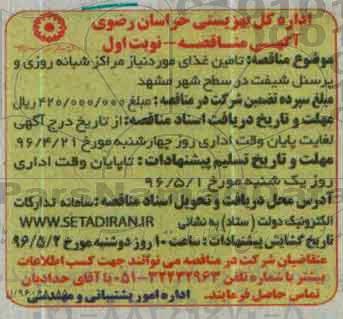 اداره کل بهزیستی خراسان رضوی
آگهی مناقصه - نوبت اول
موضوع مناقصه: تامین غذای موردنیاز مراکز شبانه روزی و
پرسنل شیفت در سطح شهر مشهد
مبلغ سپرده تضمین شرکت در مناقصه: مبلغ ۴۲۰/۰۰۰/۰۰۰ ریال
مهلت و تاریخ دریافت اسناد مناقصه: از تاریخ درج آگهی
لغایت پایان وقت اداری روز چهارشنبه مورخ ۹۶/۴/۲۱
مهلت و تاریخ تسلیم پیشنهادات: تا پایان وقت اداری
روز یک شنبه مورخ ۹۶/۵/۱
آدرس محل دریافت و تحویل اسناد مناقصه: سامانه تدارکات
الکترونیک دولت (ستاد) به نشانی WWW.SETADIRAN.IR
تاریخ گشایش پیشنهادات: ساعت ۱۰ روز دوشنبه مورخ ۹۶/۵/۲
متقاضیان شرکت در مناقصه می توانند جهت کسب اطلاعات
بیشتر با شماره تلفن ۳۲۲۳۲۹۶۳-۰۵۱ با آقای حدادیان
تماس حاصل فرمایند. اداره امور پشتیبانی و مهندسی